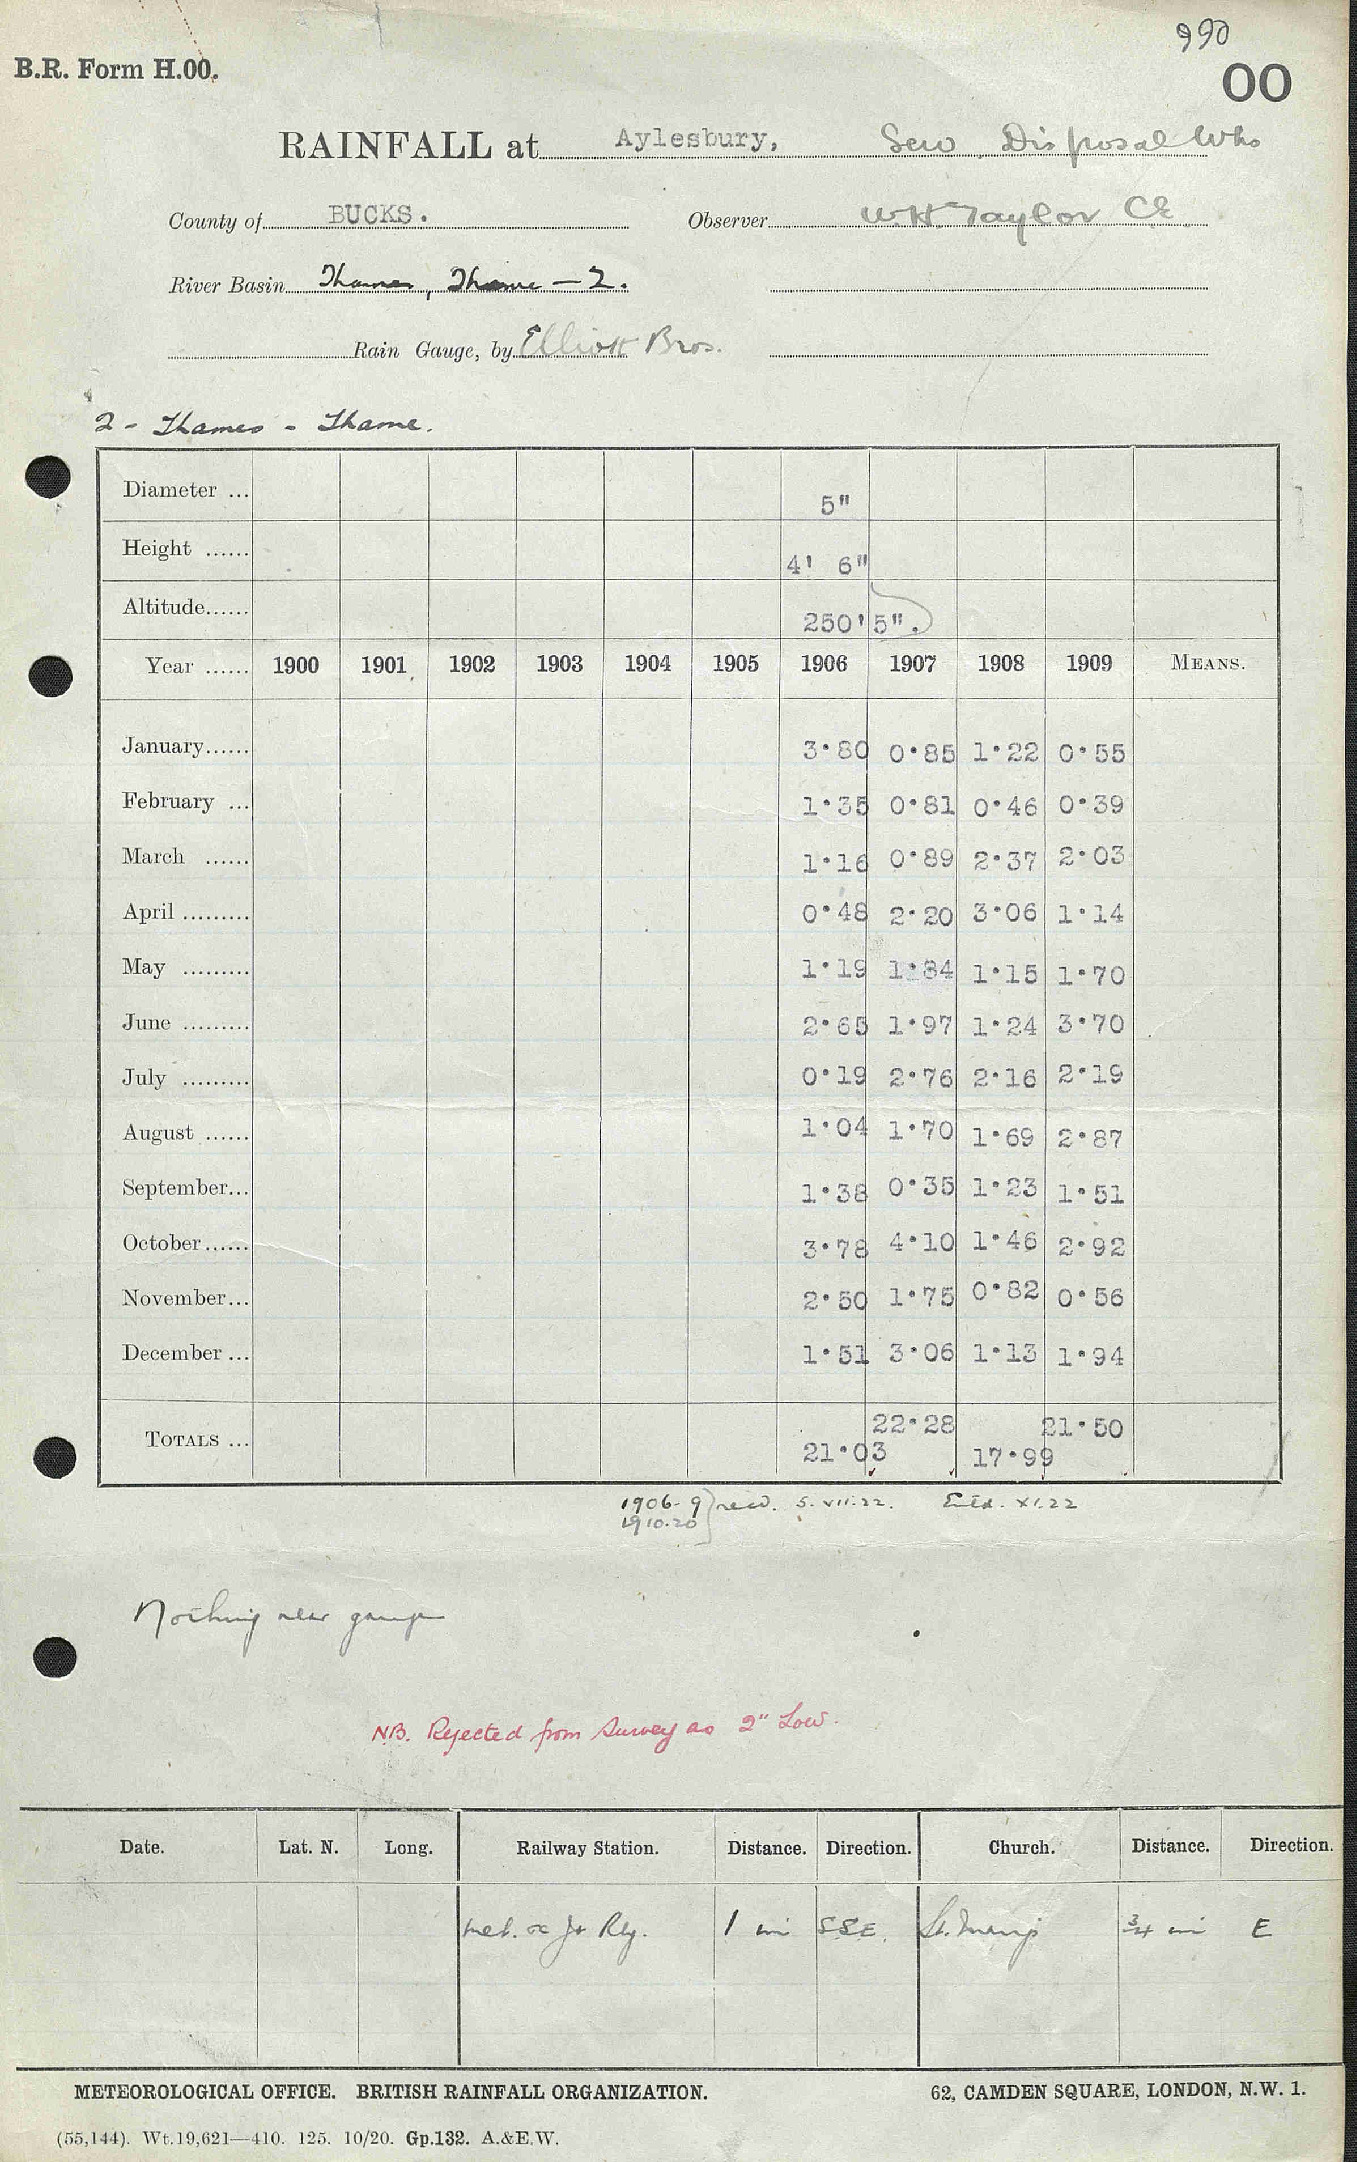 990
B.R. Form H.00.
00
RAINFALL at Aylesbury, Sew Disposal Wks
County of BUCKS. Observer W.H. Taylor CE
River Basin Thames, Thame — 2.
Rain Gauge, by Elliott Bros.
2 - Thames - Thame.
Diameter ... 5"
Height ...... 4' 6"
Altitude...... 250'5".
Year ...... 1900 1901 1902 1903 1904 1905 1906 1907 1908 1909 MEANS.
January...... 3·80 0·85 1·22 0·55
February ... 1·35 0·81 0·46 0·39
March ...... 1·16 0·89 2·37 2·03
April ......... 0·48 2·20 3·06 1·14
May ......... 1·19 1·84 1·15 1·70
June ......... 2·65 1·97 1·24 3·70
July ......... 0·19 2·76 2·16 2·19
August ...... 1·04 1·70 1·69 2·87
September... 1·38 0·35 1·23 1·51
October...... 3·78 4·10 1·46 2·92
November... 2·50 1·75 0·82 0·56
December ... 1·51 3·06 1·13 1·94
TOTALS ... 21·03 22·28 17·99 21·50
1906-9 } recd. 5.vii.22. Entd. XI.22
1910-20
Nothing near gauge
NB. Rejected from Survey as 2" Low.
Date. Lat. N. Long. Railway Station. Distance. Direction. Church. Distance. Direction.
Met. & Jt Rly. 1 mi SSE. St. Mary's 3/4 mi E
METEOROLOGICAL OFFICE. BRITISH RAINFALL ORGANIZATION. 62, CAMDEN SQUARE, LONDON, N.W. 1.
(55,144). Wt.19,621—410. 125. 10/20. Gp.132. A.&E.W.